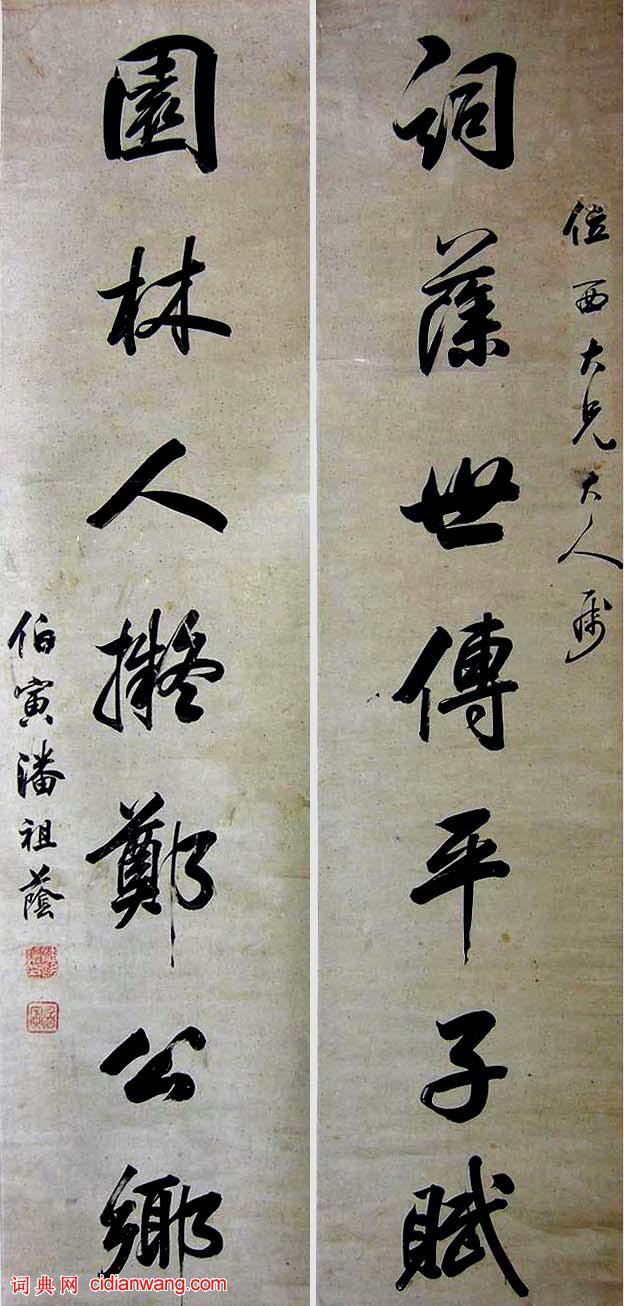 詞藻世傳平子賦
西大兄大人属
園林人擬鄭公鄉
伯寅潘祖蔭
词典网 cidianwang.com